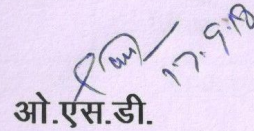 17.9.18
ओ.एस.डी.